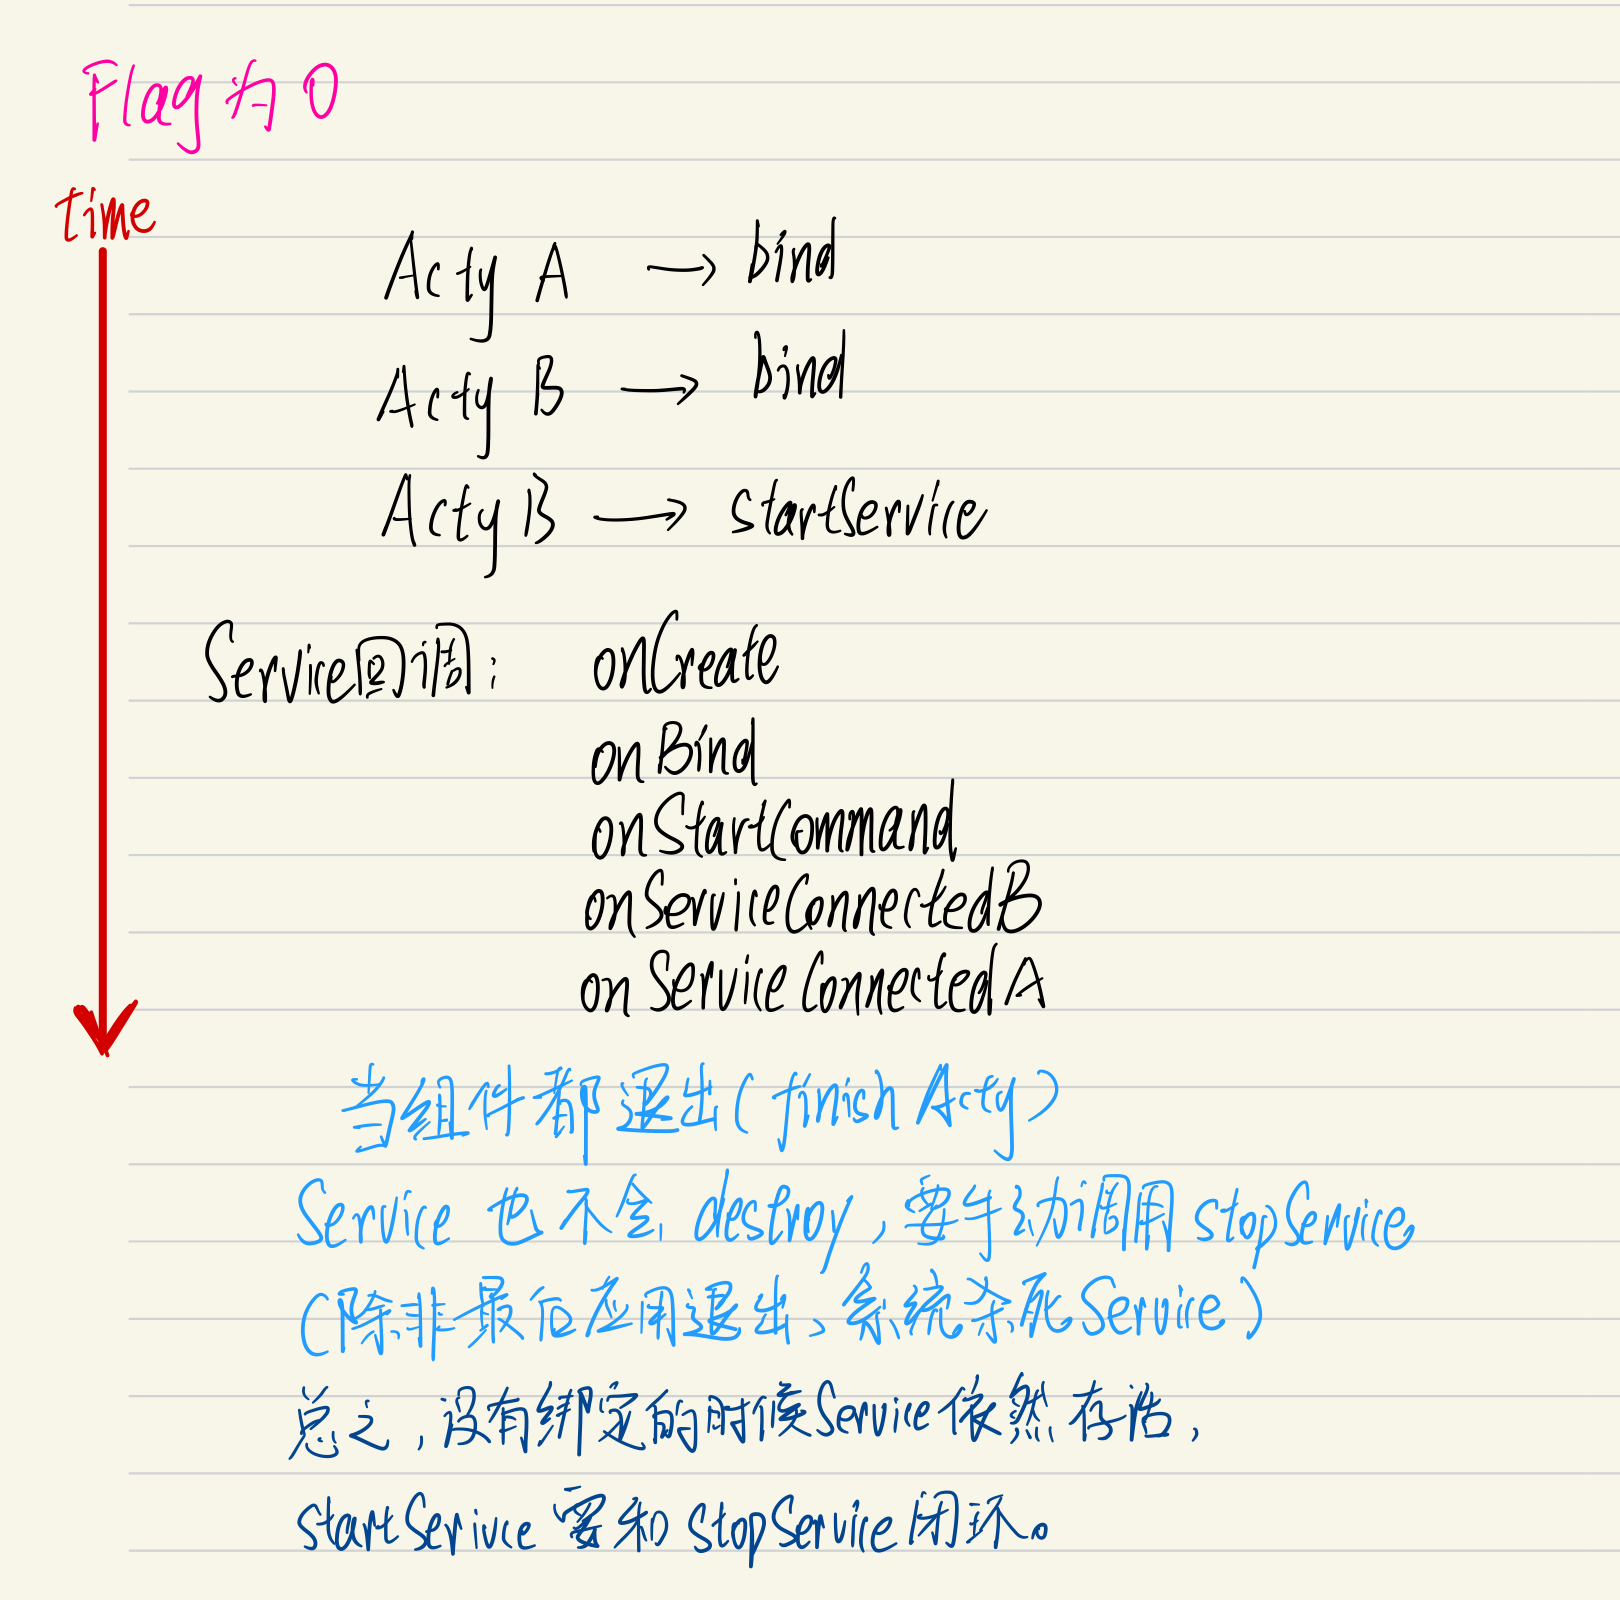 Flag为0
time
Acty A → bind
Acty B → bind
Acty B → startService
Service回调: onCreate
onBind
onStartCommand
onServiceConnectedB
onServiceConnectedA
当组件都退出(finish Acty)
Service 也不会 destroy,要手动调用 stopService
(除非最后应用退出、系统杀死Service)
总之,没有绑定的时候Service依然存活,
startSerivce 要和 stopService 闭环。